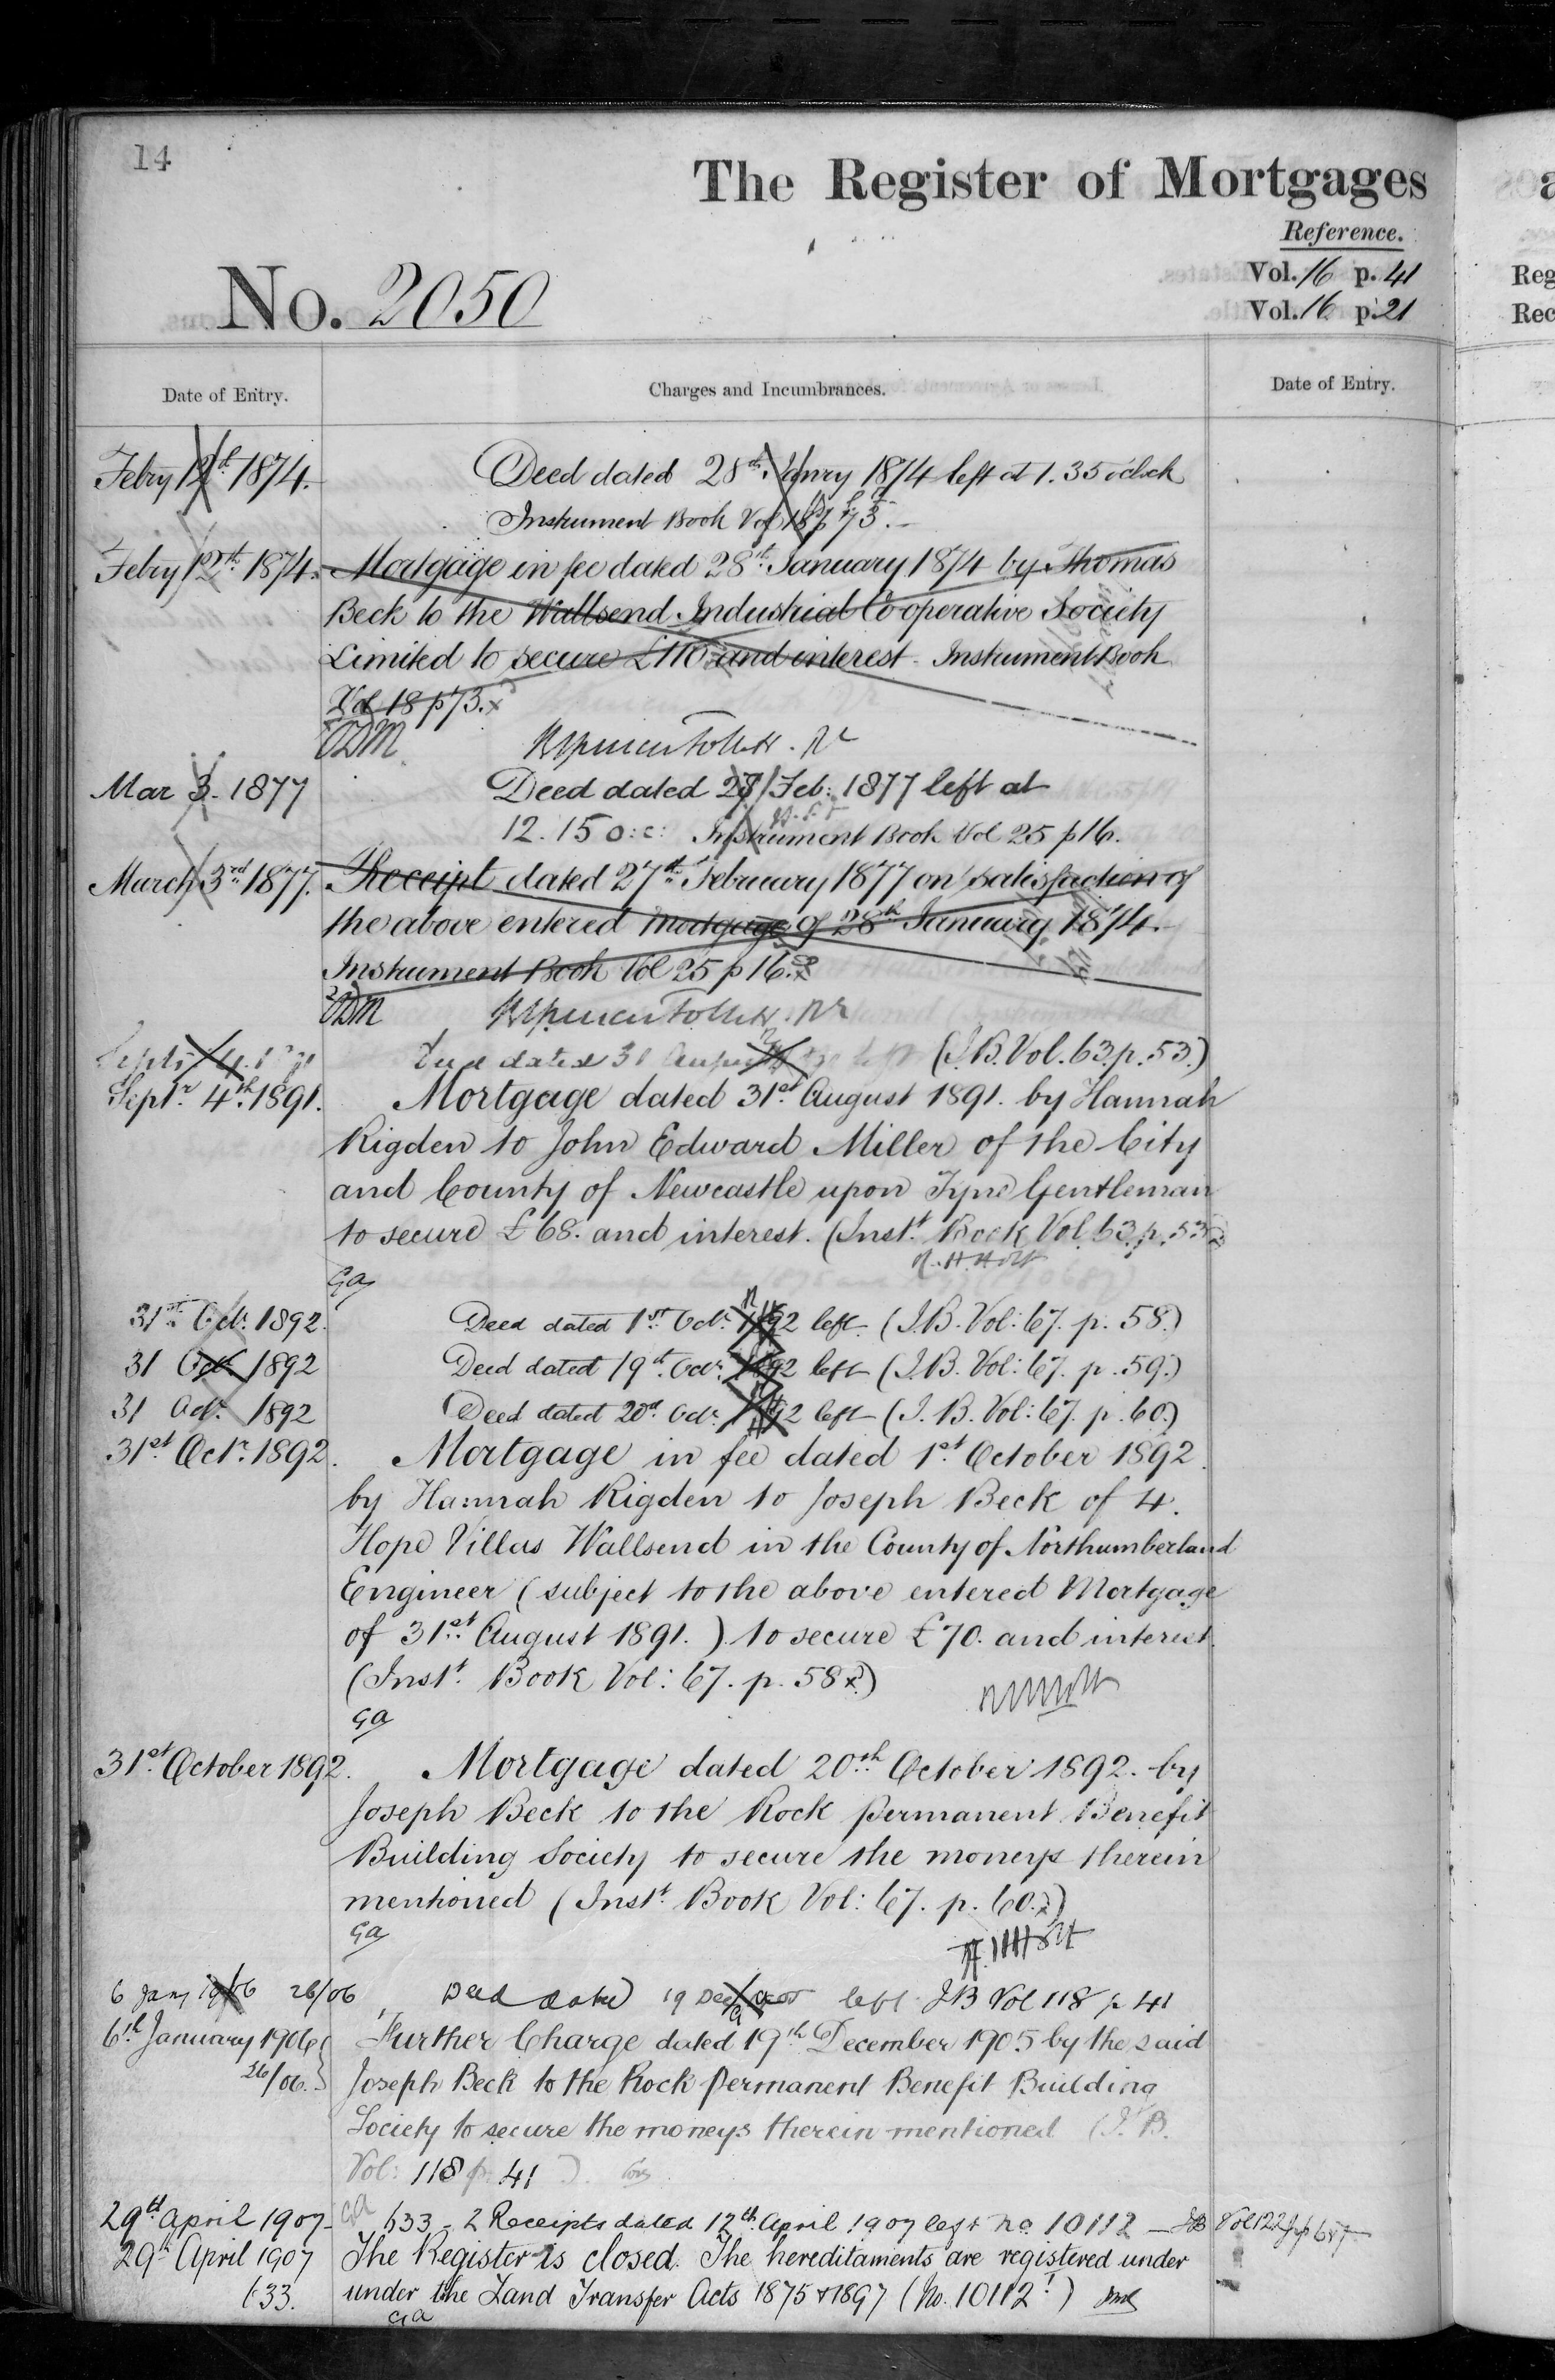 14
The Register of Mortgages
Reference.
No. 2050
Vol. 16 p. 41
Vol. 16 p. 21
Date of Entry.
Charges and Incumbrances.
Date of Entry.
Febry 12th 1874.
Deed dated 28th Janry 1874 left at 1.35 o'clock
Instrument Book Vol 18 p 73.
Febry 12th 1874.
Mortgage in fee dated 28th January 1874 by Thomas
Beck to the Wallsend Industrial Co operative Society
Limited to secure £110 and interest. Instrument Book
Vol 18 p 73.
Mar 3. 1877
Deed dated 27 Feb: 1877 left at
12.15 o:c: Instrument Book Vol 25 p 16.
March 3rd 1877.
Receipt dated 27th February 1877 on satisfaction of
the above entered mortgage of 28th January 1874.
Instrument Book Vol 25 p 16.
dated 31 (I.B. Vol. 63. p. 53.)
Septr. 4th 1891.
Mortgage dated 31st August 1891. by Hannah
Rigden to John Edward Miller of the City
and County of Newcastle upon Tyne Gentleman
to secure £68. and interest. (Inst. Book Vol. 63. p. 53.)
Ga
31st Octr. 1892.
Deed dated 1st Octr. 1892 left (I.B. Vol: 67. p. 58.)
31 Octr 1892
Deed dated 19th Octr. 1892 left (I.B. Vol: 67. p. 59.)
31 Octr. 1892
Deed dated 20th Octr. 1892 left (I.B. Vol: 67. p. 60.)
31st Octr. 1892.
Mortgage in fee dated 1st October 1892
by Hannah Rigden to Joseph Beck of 4.
Hope Villas Wallsend in the County of Northumberland
Engineer (subject to the above entered Mortgage
of 31st August 1891.) to secure £70. and interest.
(Inst. Book Vol: 67. p. 58.)
Ga
31st October 1892.
Mortgage dated 20th October 1892. by
Joseph Beck to the Rock Permanent Benefit
Building Society to secure the moneys therein
mentioned (Inst. Book Vol: 67. p. 60.)
Ga
6 Jany 1906 26/06
Deed dated 19 Dec 1905 left IB Vol 118 p 41
6th January 1906
26/06.
Further Charge dated 19th December 1905 by the said
Joseph Beck to the Rock Permanent Benefit Building
Society to secure the moneys therein mentioned (I.B.
Vol: 118 p. 41)
29th April 1907
633 - 2 Receipts dated 12th April 1907 left No. 10112 — IB Vol 122
29th April 1907
633.
The Register is closed. The hereditaments are registered under
under the Land Transfer Acts 1875 & 1897 (No. 10112)
Ga
Reg
Rec